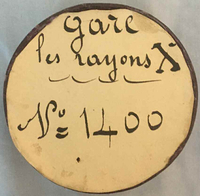 gare
les rayons X
No = 1400